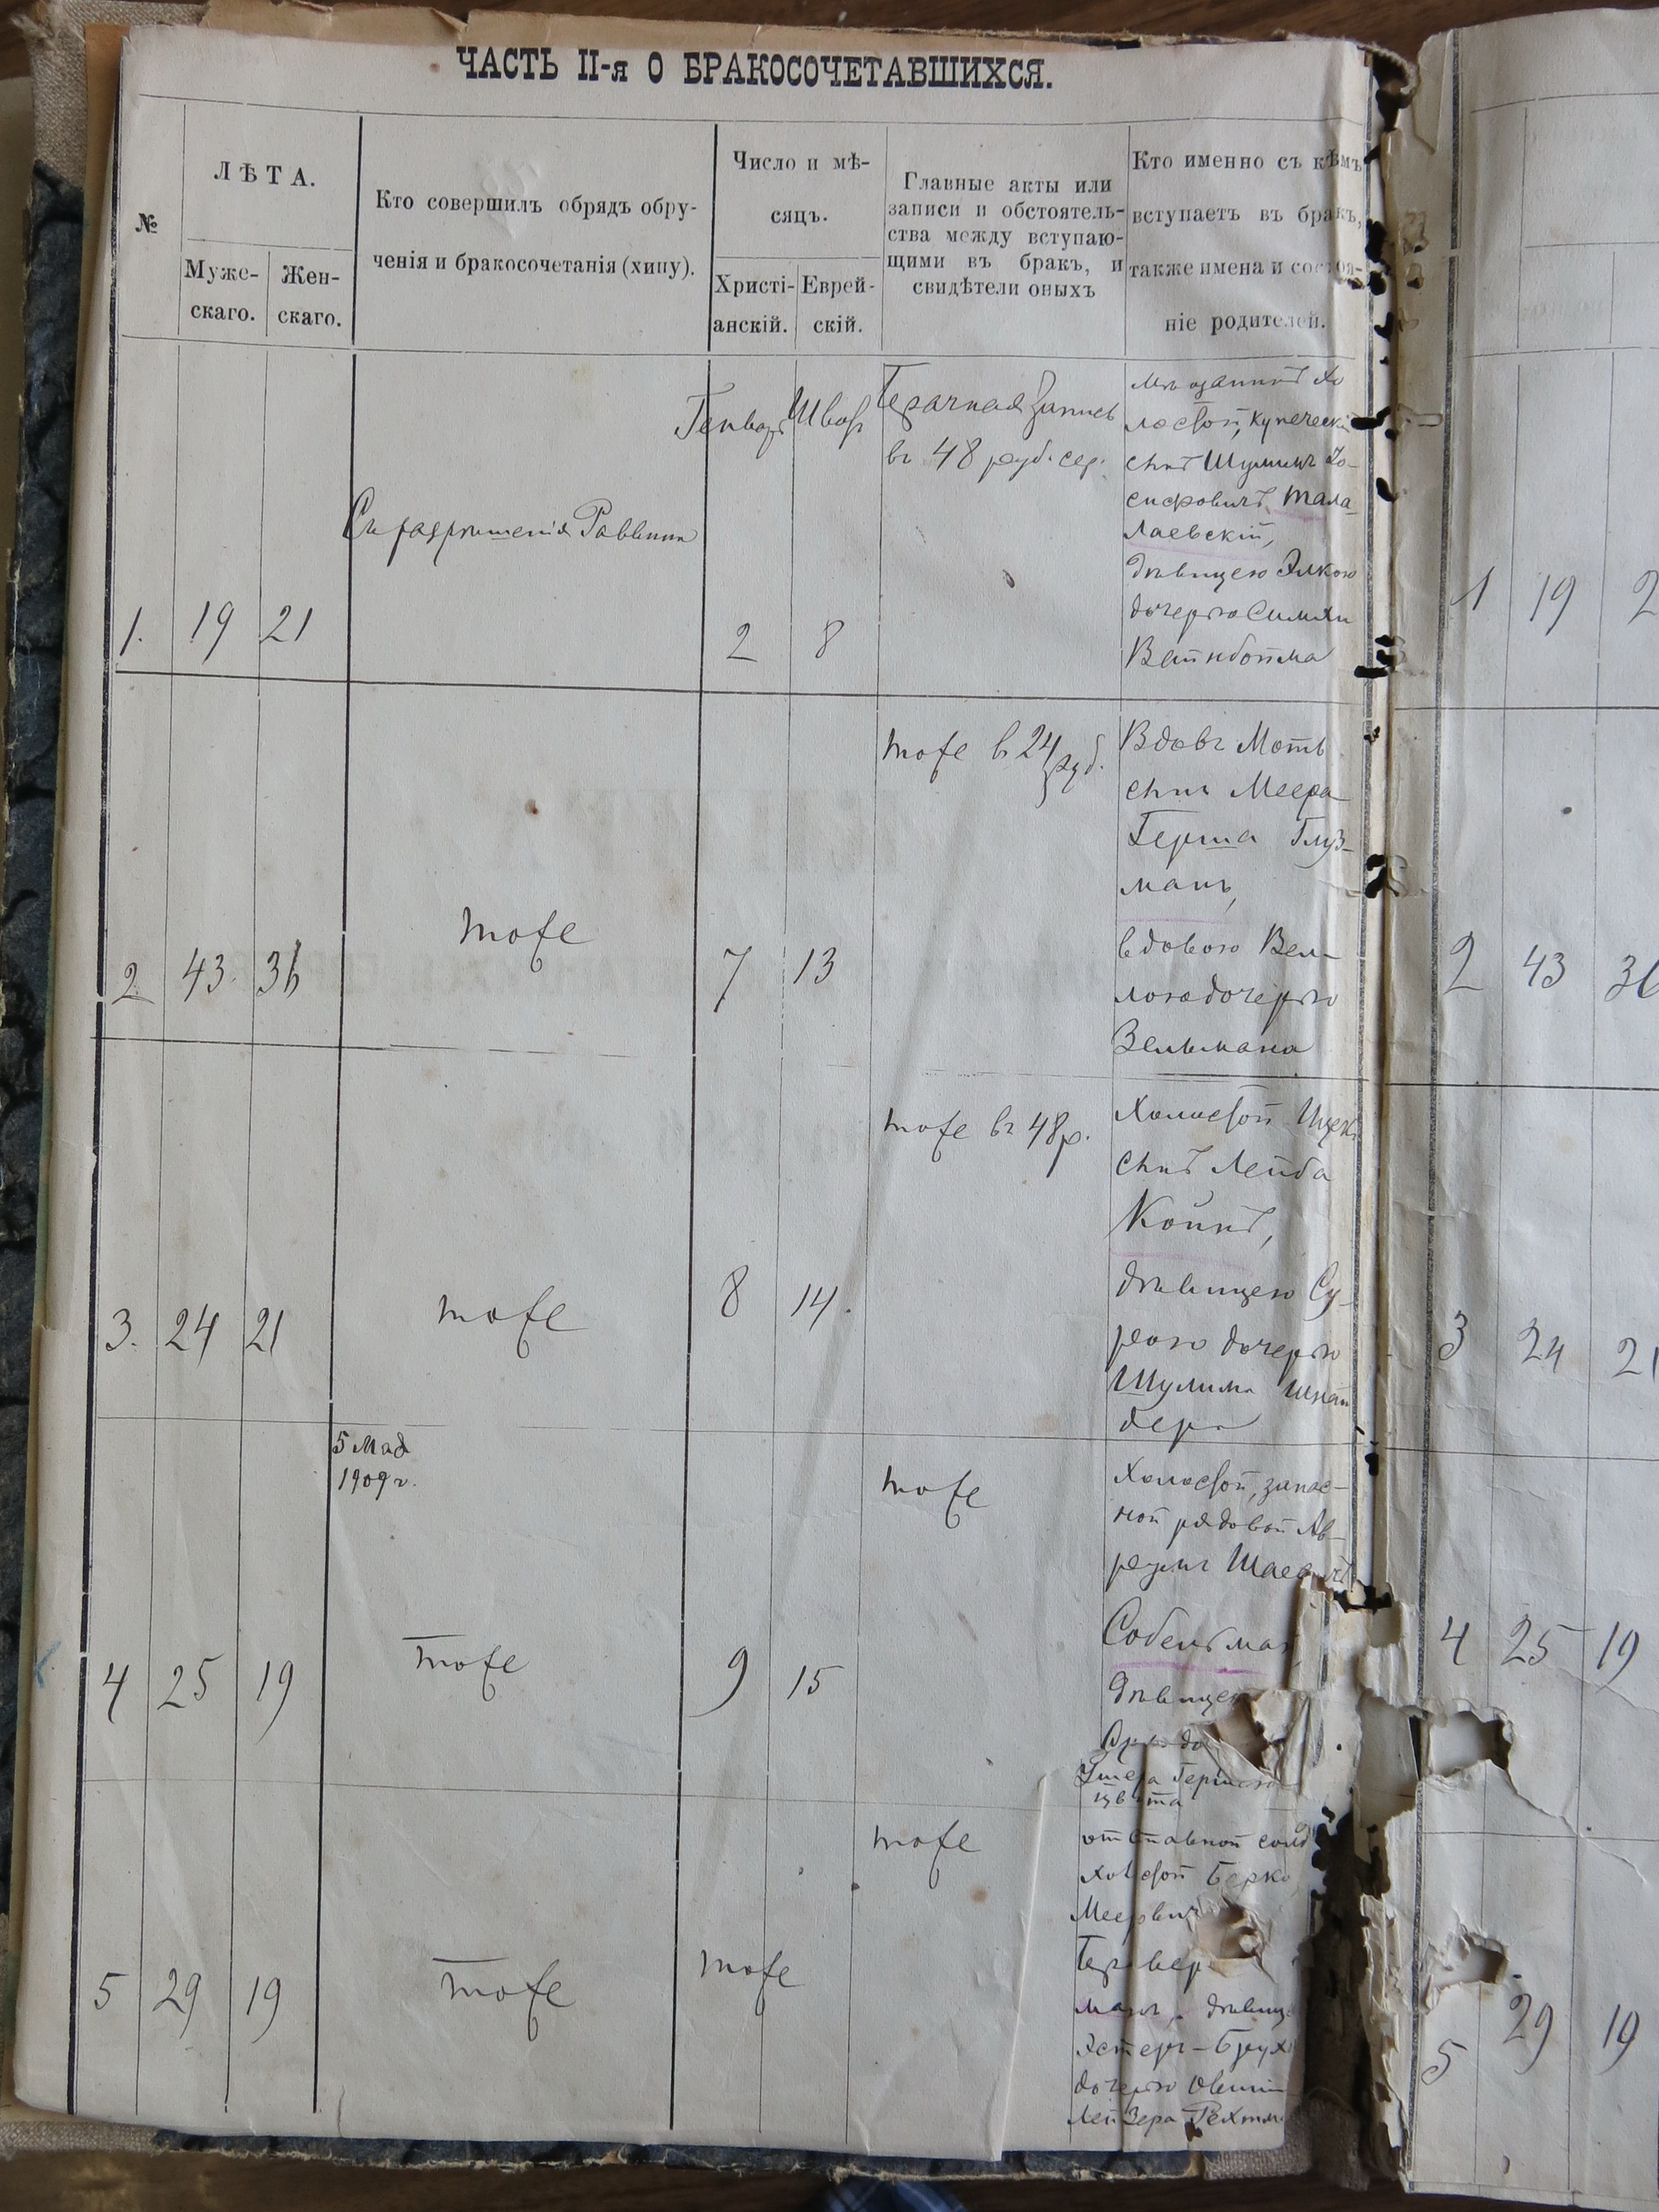 ЧАСТЬ II-я О БРАКОСОЧЕТАВШИХСЯ.
№
ЛѢТА.
Муже-
скаго.
Жен-
скаго.
Кто совершилъ обрядъ обру-
ченія и бракосочетанія (хипу).
Число и мѣ-
сяцъ.
Христі-
анскій.
Еврей-
скій.
Главные акты или
записи и обстоятель-
ства между вступаю-
щими въ бракъ, и
свидѣтели оныхъ
Кто именно съ кѣмъ
вступаетъ въ бракъ,
также имена и состоя-
ніе родителей.
1.
19
21
Съ разрѣшенія Раввина
Генварь
2
8
Брачная запись
въ 48 руб. сер.
мѣщанинъ хо
лостой, купеческій
сынъ Шулимъ Іо-
сифовичъ Тала-
лаевскій,
дѣвицею Элкою
дочерью Симхи
Вайнбойма
2
43
36
тоже
7
13
тоже въ 24 руб.
Вдовъ Моть
сынъ Меера
Герша Глуз-
манъ,
вдовою Вел-
лою дочерью
Зельмана
3.
24
21
тоже
8
14.
тоже въ 48 р.
Холостой Ицекъ
сынъ Лейба
Койнъ,
дѣвицею Су-
рою дочерью
Шулима Шнай
дера
4
25
19
5 Мая
1909 г.
тоже
9
15
тоже
Холостой, запас-
ной рядовой Ав-
румъ Шаевичъ
Собельман
дѣвицею
до
Ушера Герш
цвейта
5
29
19
тоже
тоже
тоже
отставной солд
холостой Берко
Меерович
манъ, дѣвице
Эстеръ-Брух
дочерью
Лейзера Рехтм
1
19
2
2
43
36
3
24
21
4
25
19
5
29
19